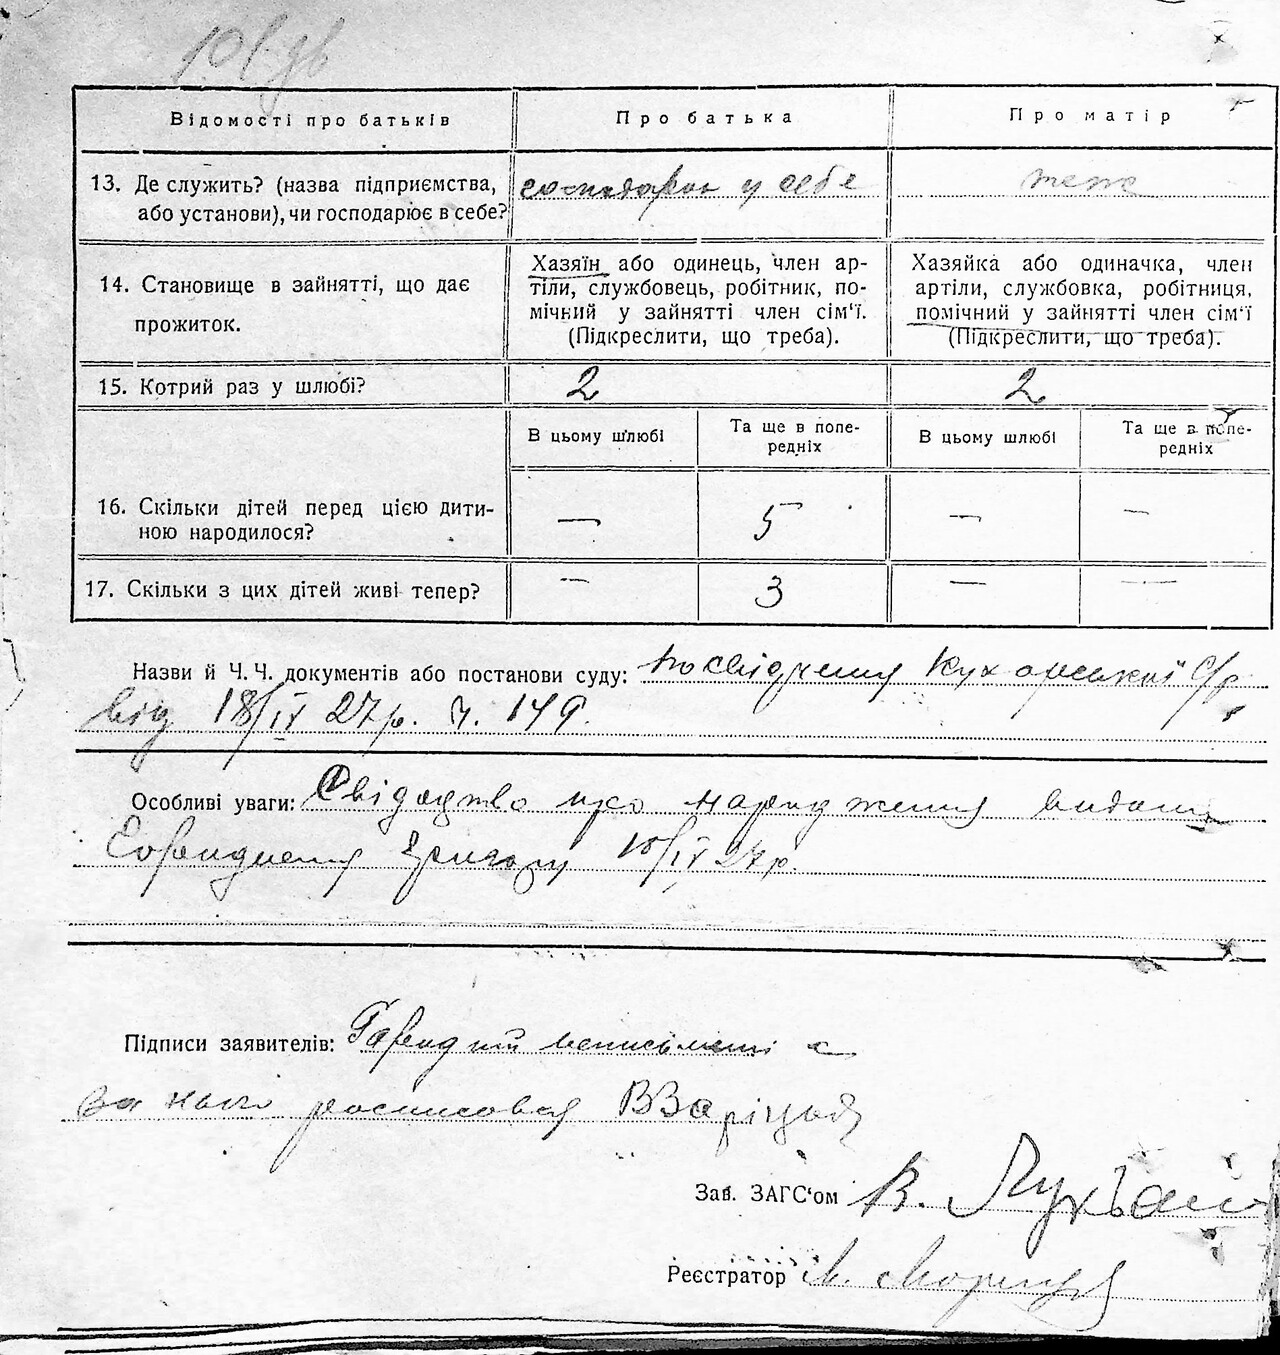 Відомості про батьків
Про батька
Про матір
13. Де служить? (назва підприємства,
або установи), чи господарює в себе?
господарює у себе
теж
14. Становище в зайнятті, що дає
прожиток.
Хазяїн або одинець, член ар-
тіли, службовець, робітник, по-
мічний у зайнятті член сім'ї.
(Підкреслити, що треба).
Хазяйка або одиначка, член
артіли, службовка, робітниця,
помічний у зайнятті член сім'ї
(Підкреслити, що треба).
15. Котрий раз у шлюбі?
2
2
В цьому шлюбі
Та ще в попе-
редніх
В цьому шлюбі
Та ще в попе-
редніх
16. Скільки дітей перед цією дити-
ною народилося?
—
5
—
—
17. Скільки з цих дітей живі тепер?
—
3
—
—
Назви й Ч. Ч. документів або постанови суду: посвідчення Кухарської С/р
від 18/IV 27р. ч. 149.
Особливі уваги: Свідоцтво про народження видано
18/IV 27р.
Підписи заявителів: неписьмений а
за нього росписовся
Зав. ЗАГС'ом В.
Реєстратор